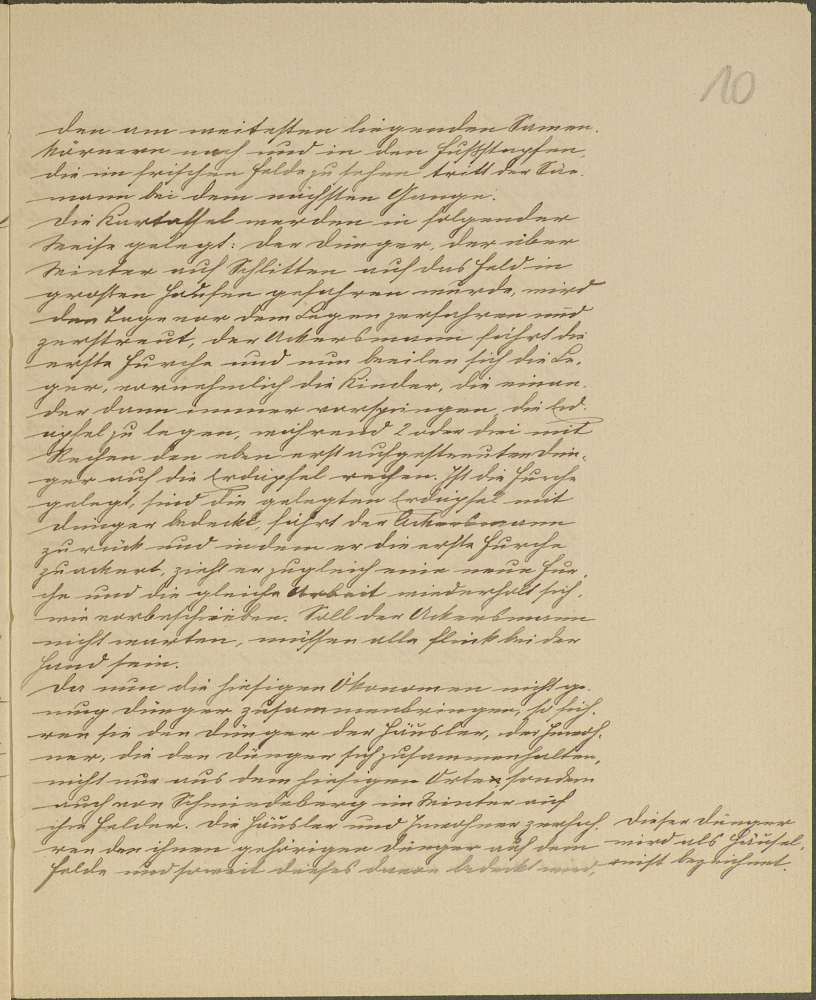 10
den am weitesten liegenden Samen-
körnern nach und in den Fußstapfen,
die im frischen Felde zu sehen tritt der Säe-
mann bei dem nächsten Gange.
Die Kartoffel werden in folgender
Weise gelegt: Der Dünger, der über
Winter auf Schlitten auf das Feld in
großen Haufen gefahren wurde, wird
den Tage vor dem Legen zerfahren und
zerstreut, der Ackersmann führt die
erste Furche und nun beeilen sich die Le-
ger, vornehmlich die Kinder, die einan-
der dann immer vorspringen, die Erd-
äpfel zu legen, während 2 oder drei mit
Rechen den eben erst aufgestreuten Dün-
ger auf die Erdäpfel rechen. Ist die Furche
gelegt, sind die gelegten Erdäpfel mit
Dünger bedeckt, fährt der Ackersmann
zurück und indem er die erste Furche
zuackert, zieht er zugleich eine neue Fur-
che und die gleiche Arbeit wiederholt sich,
wie vorbeschrieben. Soll der Ackersmann
nicht warten, müssen alle flink bei der
Hand sein.
Da nun die hiesigen Ökonomen nicht ge-
nug Dünger zusammenbringen, so füh-
ren sie den Dünger der Häusler, der Inwoh-
ner, die den Dünger sich zusammenhalten,
nicht nur aus dem hiesigen Orte, sondern
auch von Schmiedeberg im Winter auf
ihre Felder. Die Häusler und Inwohner zerfah-
ren den ihnen gehörigen Dünger auf dem
Felde und soweit dieses davon bedeckt wird,
Dieser Dünger
wird als Häusel-
mist bezeichnet.